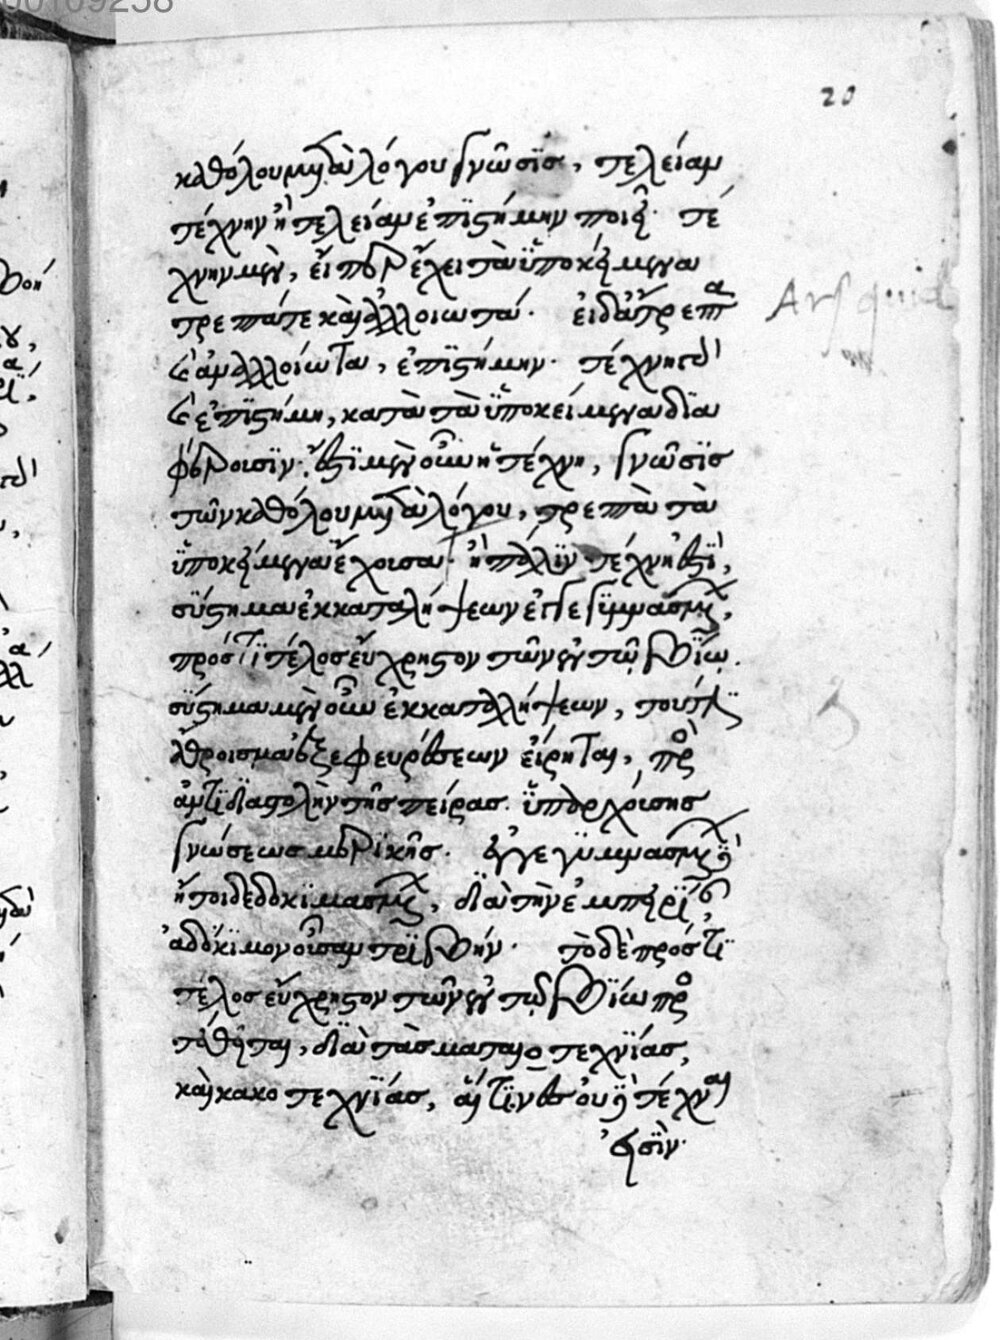 00109258
20
καθόλου μετὰ λόγου γνῶσις, τελείαν
τέχνην ἢ τελείαν ἐπιστήμην ποιεῖ· τέ
χνην μὲν, εἴπερ ἔχει τὰ ὑποκείμενα
τρεπτά τε καὶ ἀλλοιωτά· εἰ δὲ ἄτρεπτα
καὶ ἀναλλοίωτα, ἐπιστήμην· τέχνη δὲ
καὶ ἐπιστήμη, κατὰ τὰ ὑποκείμενα δια
φέρουσιν· ἔστι μὲν οὖν ἡ τέχνη, γνῶσις
τῶν καθόλου μετὰ λόγου, τρεπτὰ τὰ
ὑποκείμενα ἔχουσα· ἢ πάλιν τέχνη ἐστὶ,
σύστημα ἐκ καταλήψεων ἐγγεγυμνασμένων,
πρός τι τέλος εὔχρηστον τῶν ἐν τῷ βίῳ.
σύστημα μὲν οὖν ἐκ καταλήψεων, τουτέστιν
ἄθροισμα ἐξ ἐφευρέσεων εἴρηται, πρὸς
ἀντιδιαστολὴν τῆς πείρας ὑπαρχούσης
γνώσεως μερικῆς· ἐγγεγυμνασμένων δὲ
ἤτοι δεδοκιμασμένων, διὰ τὴν ἐμπειρίαν,
ἀδόκιμον οὖσαν τριβήν· τὸ δὲ πρός τι
τέλος εὔχρηστον τῶν ἐν τῷ βίῳ προσ
τέθειται, διὰ τὰς ματαιοτεχνίας,
καὶ κακοτεχνίας, αἵτινες οὐ τέχναι
εἰσίν·
Ars quid